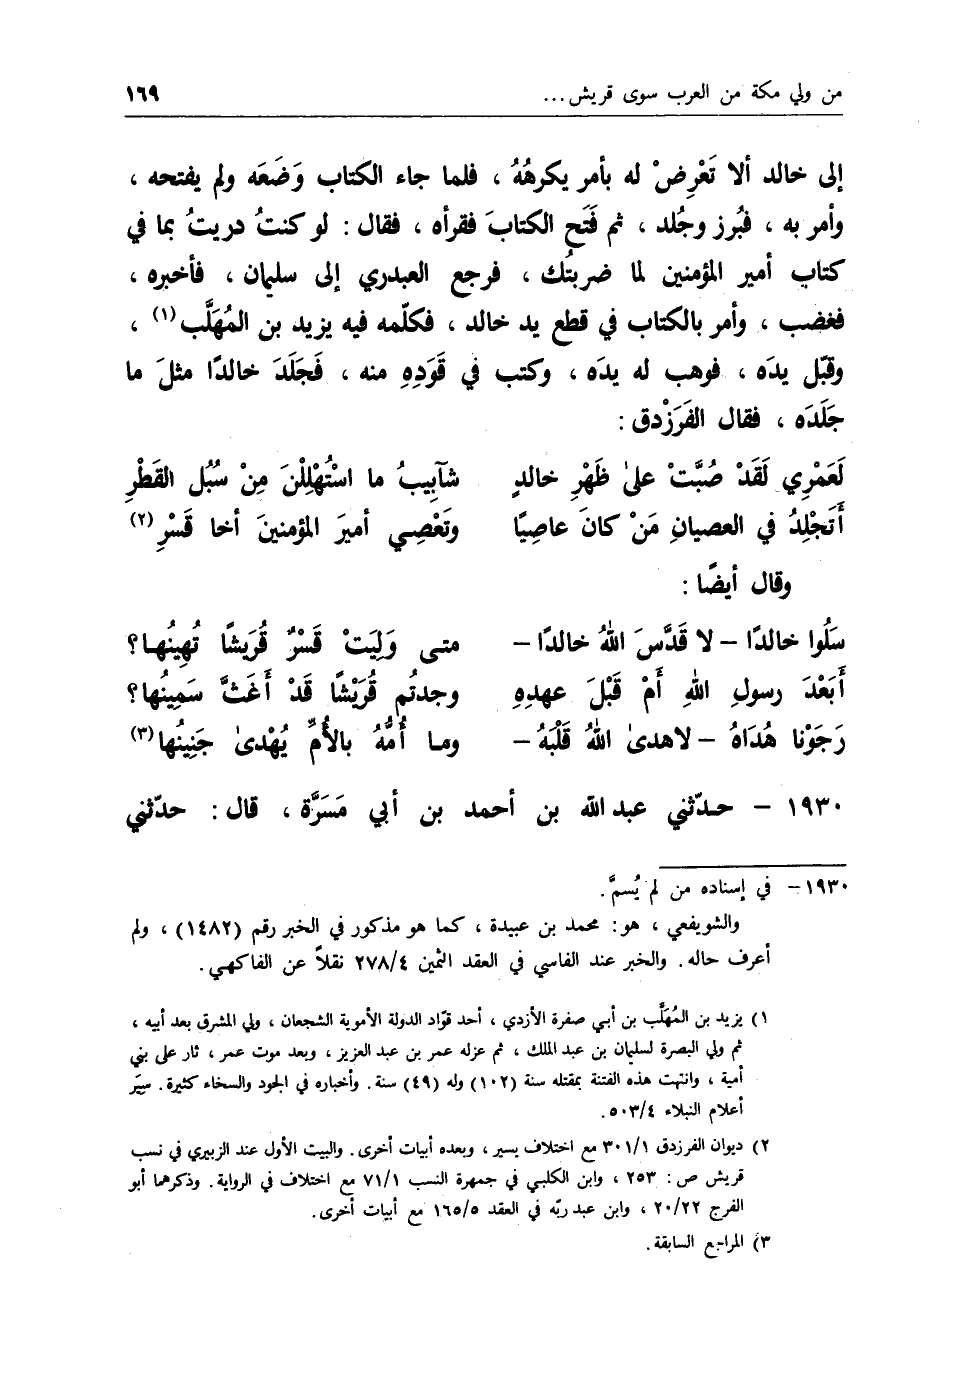 من ولي مكة من العرب سوى قريش... ١٦٩
إلى خالد ألا تَعْرِضْ له بأمر يكرهُهُ ، فلما جاء الكتاب وَضَعَه ولم يفتحه ،
وأمر به ، فبُرز وجُلد ، ثم فَتَح الكتابَ فقرأه ، فقال : لو كنتُ دريتُ بما في
كتاب أمير المؤمنين لما ضربتُك ، فرجع العبدري إلى سليمان ، فأخبره ،
فغضب ، وأمر بالكتاب في قطع يد خالد ، فكلّمه فيه يزيد بن المُهَلَّب(١) ،
وقبّل يدَه ، فوهب له يدَه ، وكتب في قَوَدِهِ منه ، فَجَلَدَ خالدًا مثلَ ما
جَلَدَه ، فقال الفَرَزْدق :
لَعَمْرِي لَقَدْ صُبَّتْ علىٰ ظَهْرِ خالدٍ شآبِيبُ ما اسْتُهْلِلْنَ مِنْ سُبُل القَطْرِ
أَتَجْلِدُ في العصيانِ مَنْ كانَ عاصِيًا وتَعْصِي أميرَ المؤمنينَ أخا قَسْرِ(٢)
وقال أيضًا :
سَلُوا خالدًا – لا قَدَّسَ اللهُ خالدًا – متى وَلِيَتْ قَسْرٌ قُرَيشًا تُهِينُها؟
أَبَعْدَ رسولِ اللهِ أَمْ قَبْلَ عهدِهِ وجدتُم قُرَيْشًا قَدْ أَغَثَّ سَمِينُها؟
رَجَوْنا هُدَاهُ – لاهدىٰ اللهُ قَلْبَهُ – وما أُمُّهُ بالأُمِّ يُهْدىٰ جَنِينُها(٣)
١٩٣٠ – حدّثني عبدالله بن أحمد بن أبي مَسَرَّة ، قال : حدّثني
١٩٣٠– في إسناده من لم يُسمَّ.
والشويفعي ، هو: محمد بن عبيدة ، كما هو مذكور في الخبر رقم (١٤٨٢) ، ولم
أعرف حاله. والخبر عند الفاسي في العقد الثمين ٢٧٨/٤ نقلاً عن الفاكهي.
١) يزيد بن المُهَلَّب بن أبي صفرة الأزدي ، أحد قوّاد الدولة الأموية الشجعان ، ولي المشرق بعد أبيه ،
ثم ولي البصرة لسليمان بن عبد الملك ، ثم عزله عمر بن عبد العزيز ، وبعد موت عمر ، ثار على بني
أمية ، وانتهت هذه الفتنة بمقتله سنة (١٠٢) وله (٤٩) سنة. وأخباره في الجود والسخاء كثيرة. سِيَر
أعلام النبلاء ٥٠٣/٤.
٢) ديوان الفرزدق ٣٠١/١ مع اختلاف يسير ، وبعده أبيات أخرى. والبيت الأول عند الزبيري في نسب
قريش ص: ٢٥٣ ، وابن الكلبي في جمهرة النسب ٧١/١ مع اختلاف في الرواية. وذكرهما أبو
الفرج ٢٠/٢٢ ، وابن عبد ربّه في العقد ١٦٥/٥ مع أبيات أخرى.
٣) المراجع السابقة.